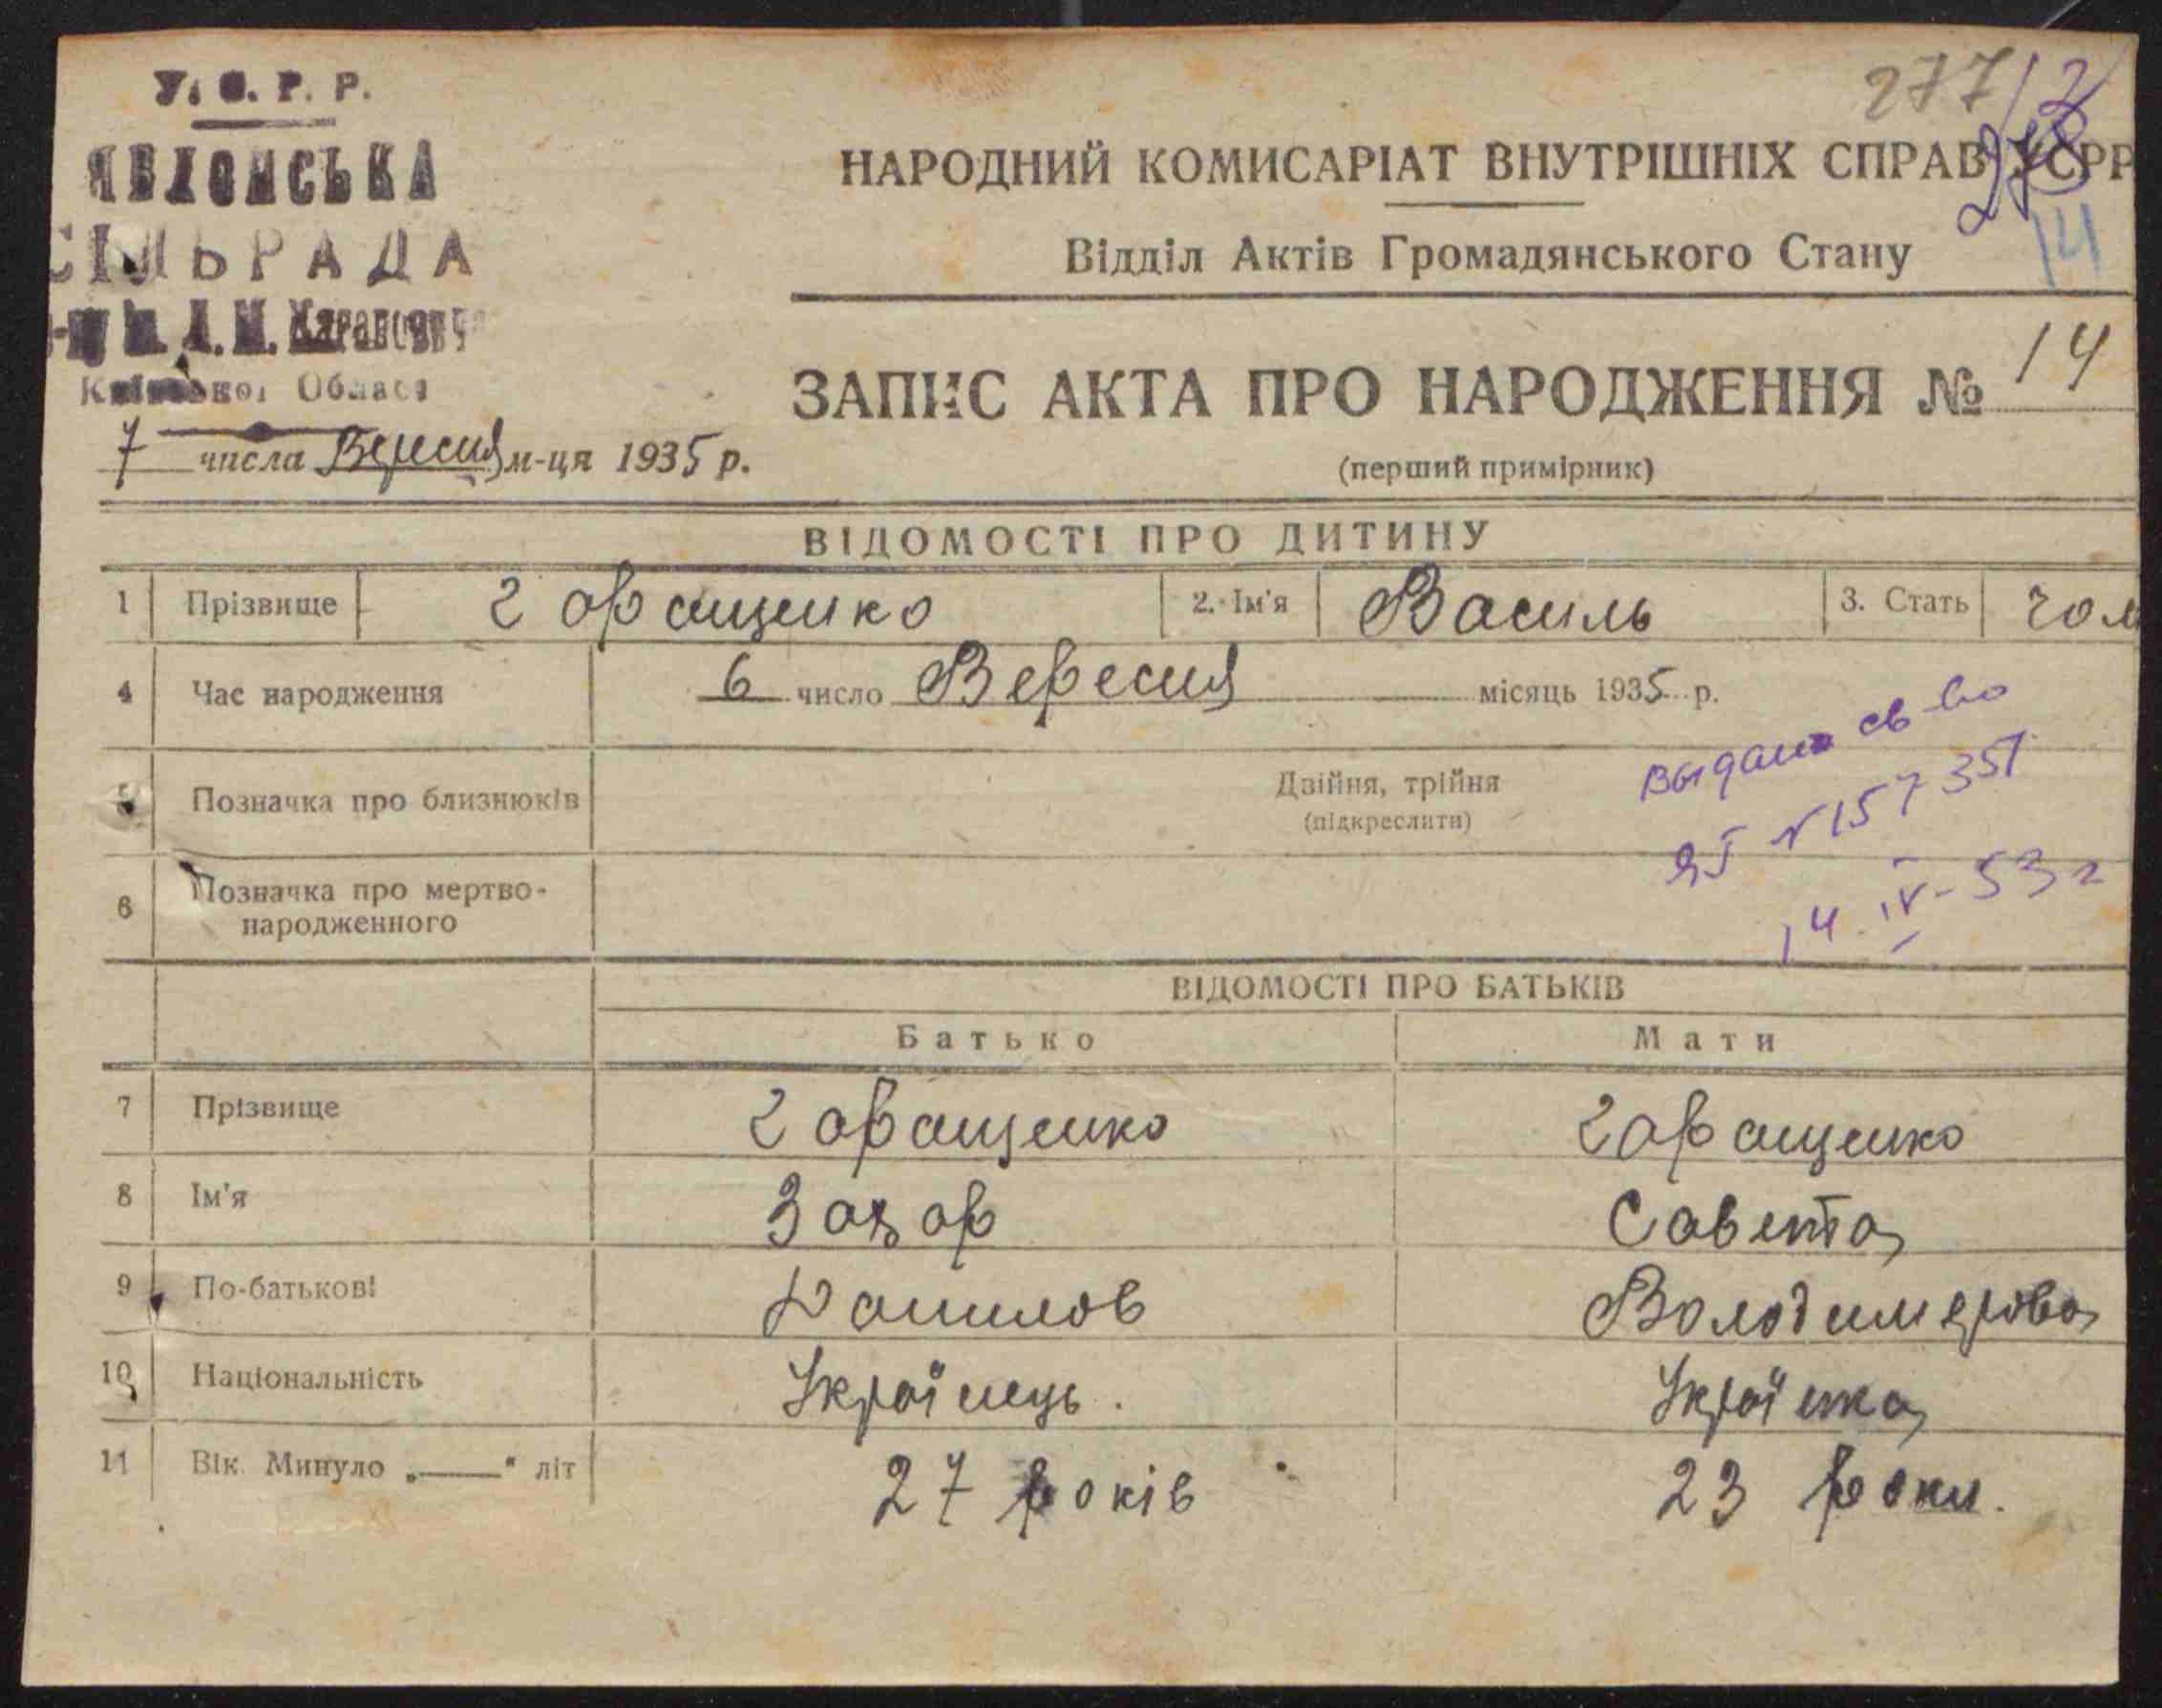 У. С. Р. Р.
СІЛЬРАДА
Обласі
7 числа Вересня м-ця 1935 р.
277/2
278
14
НАРОДНИЙ КОМИСАРІАТ ВНУТРІШНІХ СПРАВ УСРР
Відділ Актів Громадянського Стану
ЗАПИС АКТА ПРО НАРОДЖЕННЯ № 14
(перший примірник)
ВІДОМОСТІ ПРО ДИТИНУ
1 Прізвище Гаращенко 2. Ім'я Василь 3. Стать чол
4 Час народження 6 число Вересня місяць 1935 р.
5 Позначка про близнюків Двійня, трійня
(підкреслити)
6 Позначка про мертво-
народженного
выдано св-во
ЯТ № 157351
14. IV-53 г
ВІДОМОСТІ ПРО БАТЬКІВ
Батько Мати
7 Прізвище Гаращенко Гаращенко
8 Ім'я Захар Савета
9 По-батькові Данилов Володимерова
10 Національність Українець. Українка
11 Вік. Минуло „——" літ 27 років 23 роки.